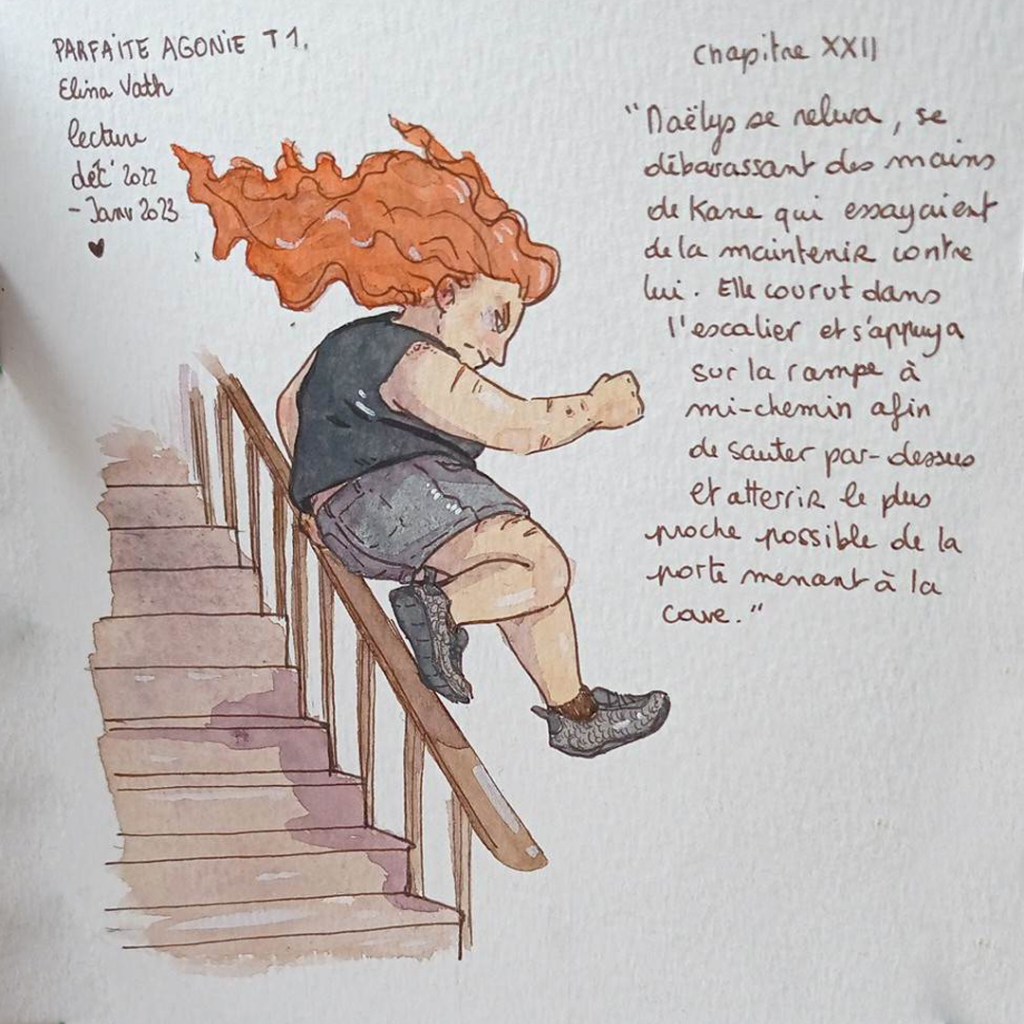 PARFAITE AGONIE T1.
Elina Vath
lecture
déc' 2022
- Janv 2023
Chapitre XXII
"Naëlys se releva, se
débarassant des mains
de Kane qui essayaient
de la maintenir contre
lui. Elle courut dans
l'escalier et s'appuya
sur la rampe à
mi-chemin afin
de sauter par-dessus
et atterrir le plus
proche possible de la
porte menant à la
cave."